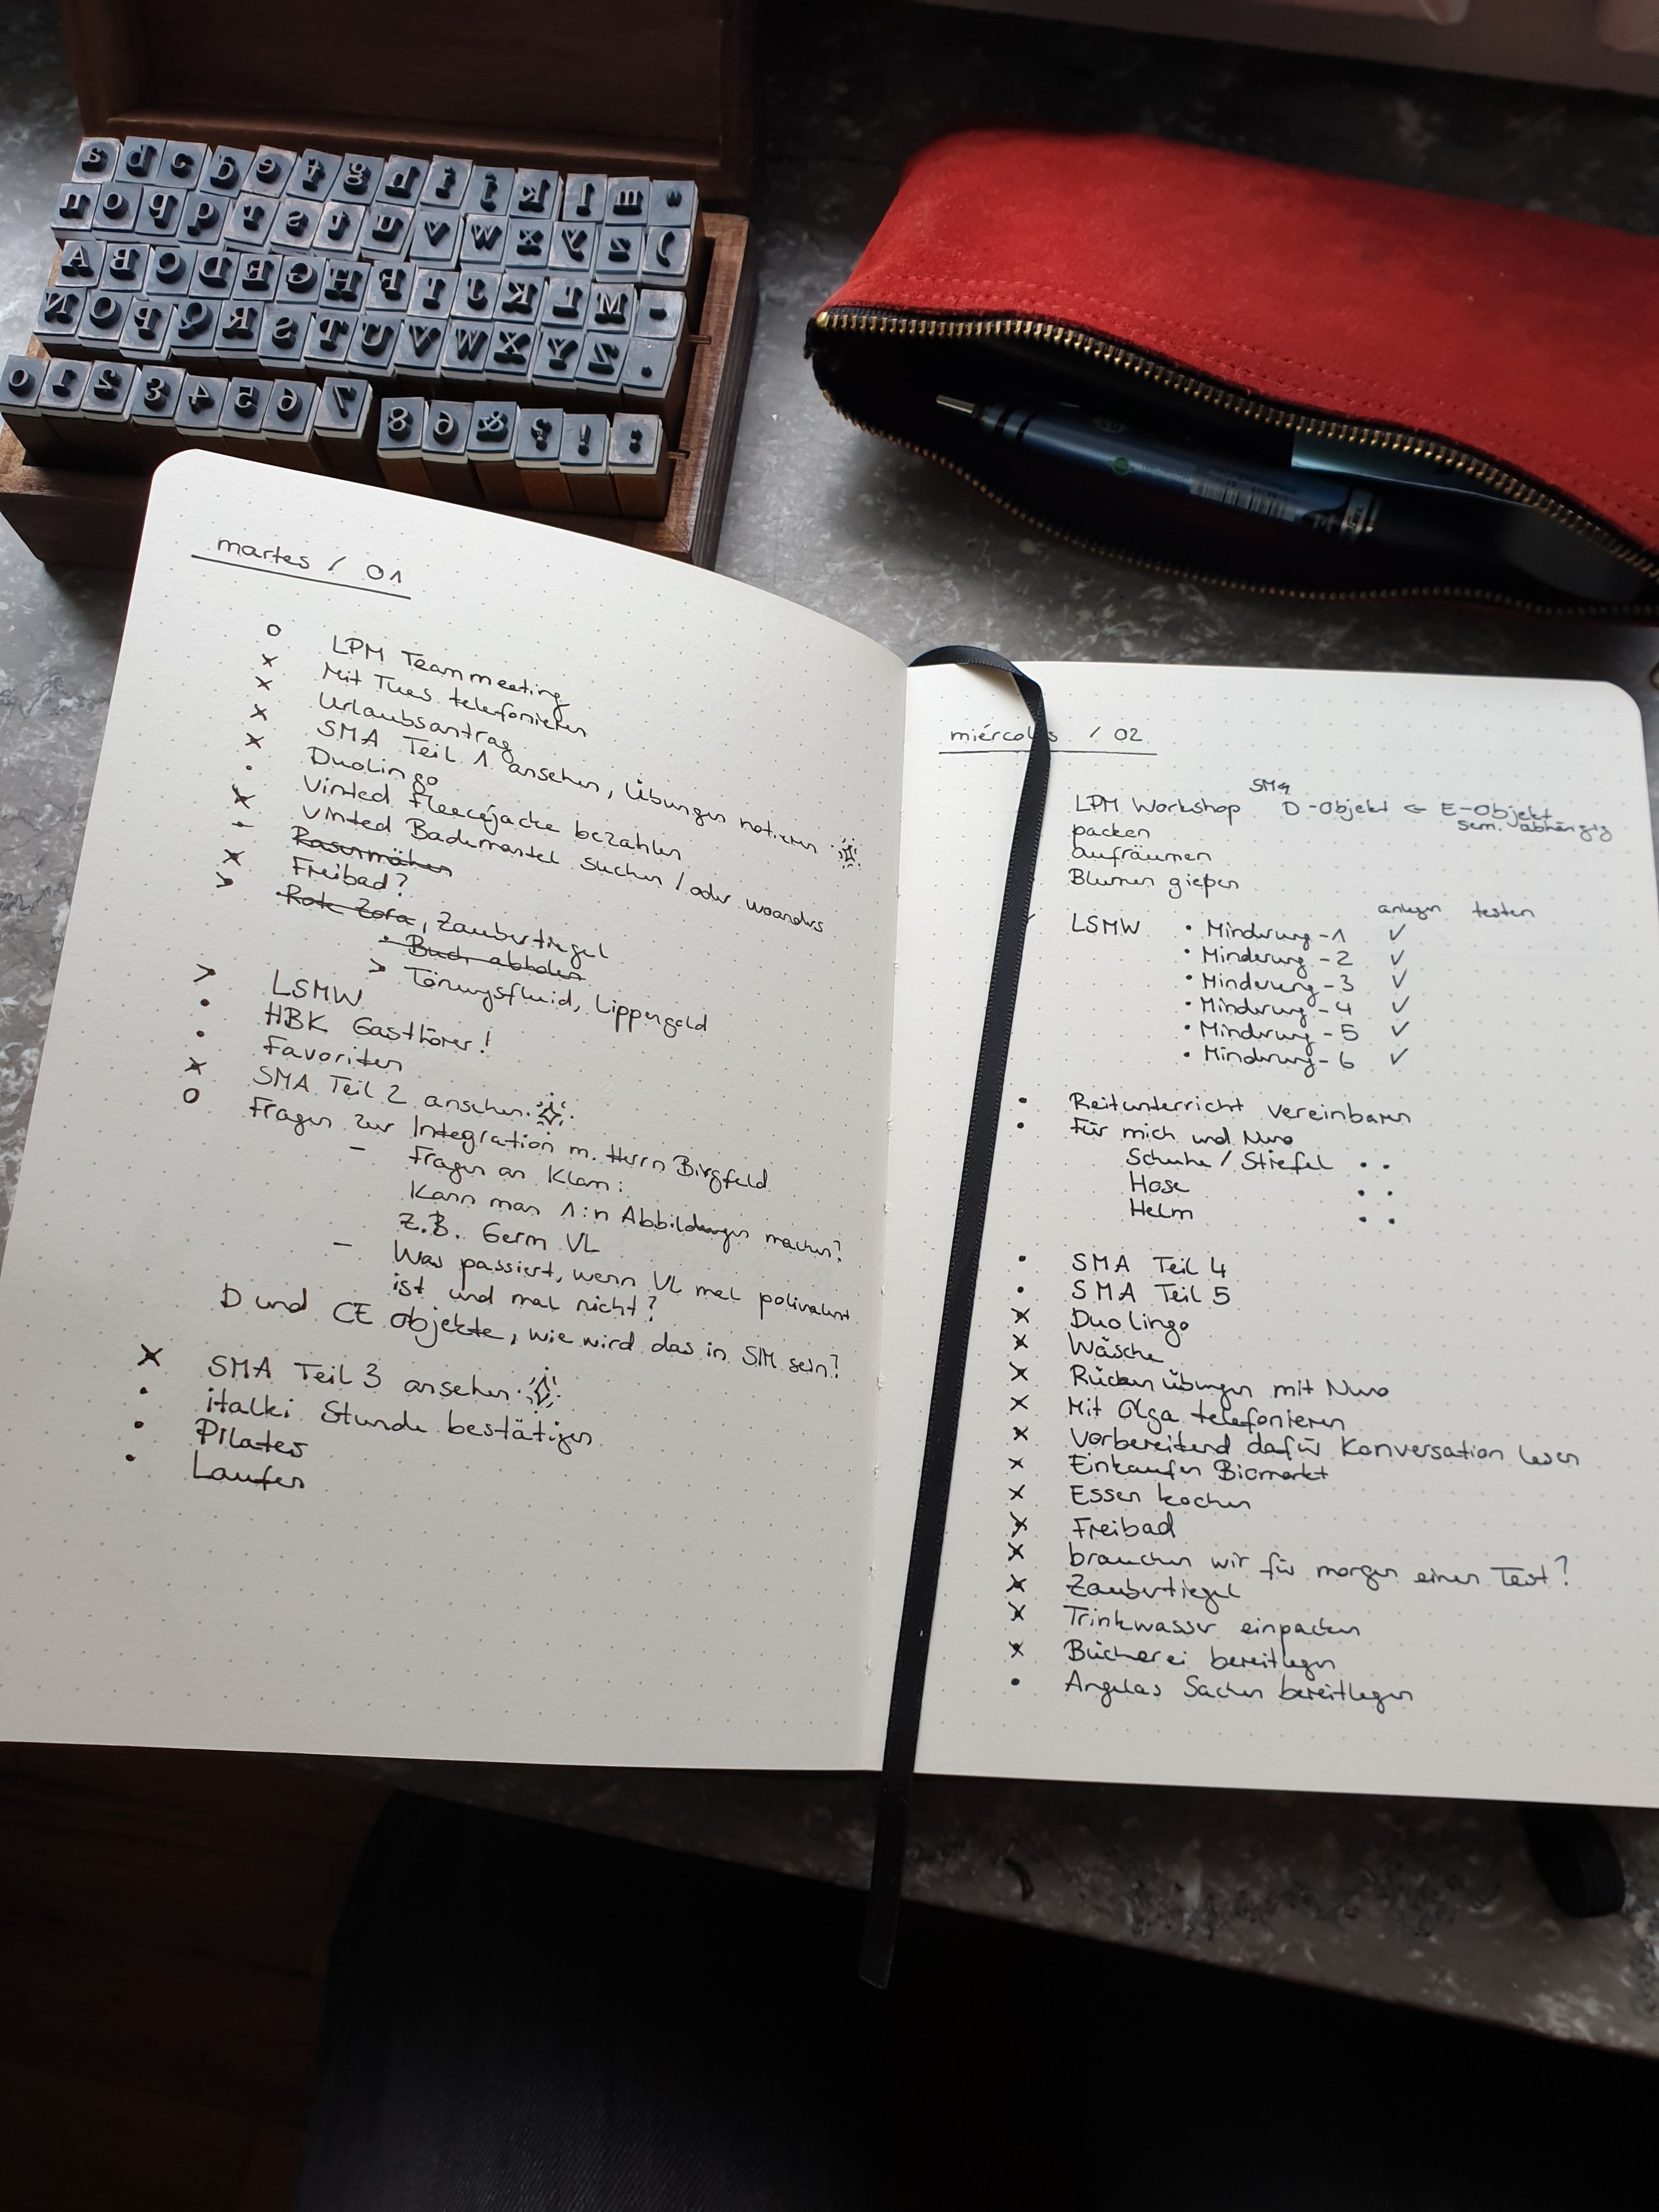 a b c d e f g h i j k l m "
n o p q r s t u v w x y z )
A B C D E G H F I J K L M -
N O P Q R S T U V W X Y Z .
0 1 2 3 4 5 6 7 8 9 & ? ! :
martes / 01
o LPM Teammeeting
x Mit Tues telefonieren
x Urlaubsantrag
x SMA Teil 1 ansehen, Übungen notieren
x Duolingo
• Vinted Fleecejacke bezahlen
x Vinted Bademantel suchen / oder woanders
- Rasenmähen
x Freibad?
> Rote Zora, Zaubertiegel
• Buch abholen
> Tönungsfluid, Lippengold
> LSMW
• HBK Gasthörer!
• Favoriten
x SMA Teil 2 ansehen
o Fragen zur Integration m. Herrn Birgfeld
- Fragen an Klam:
Kann man 1:n Abbildungen machen?
z.B. Germ VL
- Was passiert, wenn VL mal polivalent
ist und mal nicht?
D und CE Objekte, wie wird das in SIM sein?
x SMA Teil 3 ansehen
• italki Stunde bestätigen
• Pilates
• Laufen
miércoles / 02
SMA
LPM Workshop D-Objekt ← E-Objekt
sem. abhängig
packen
aufräumen
Blumen gießen
anlegen testen
LSMW • Minderung-1 ✓
• Minderung-2 ✓
• Minderung-3 ✓
• Minderung-4 ✓
• Minderung-5 ✓
• Minderung-6 ✓
• Reitunterricht vereinbaren
• Für mich und Nuno
Schuhe / Stiefel • •
Hose • •
Helm • •
• SMA Teil 4
• SMA Teil 5
x Duolingo
x Wäsche
x Rückenübungen mit Nuno
x Mit Olga telefonieren
x Vorbereitend dafür Konversation lesen
x Einkaufen Biomarkt
x Essen kochen
x Freibad
x brauchen wir für morgen einen Test?
x Zaubertiegel
x Trinkwasser einpacken
x Bücherei bereitlegen
• Angelas Sachen bereitlegen